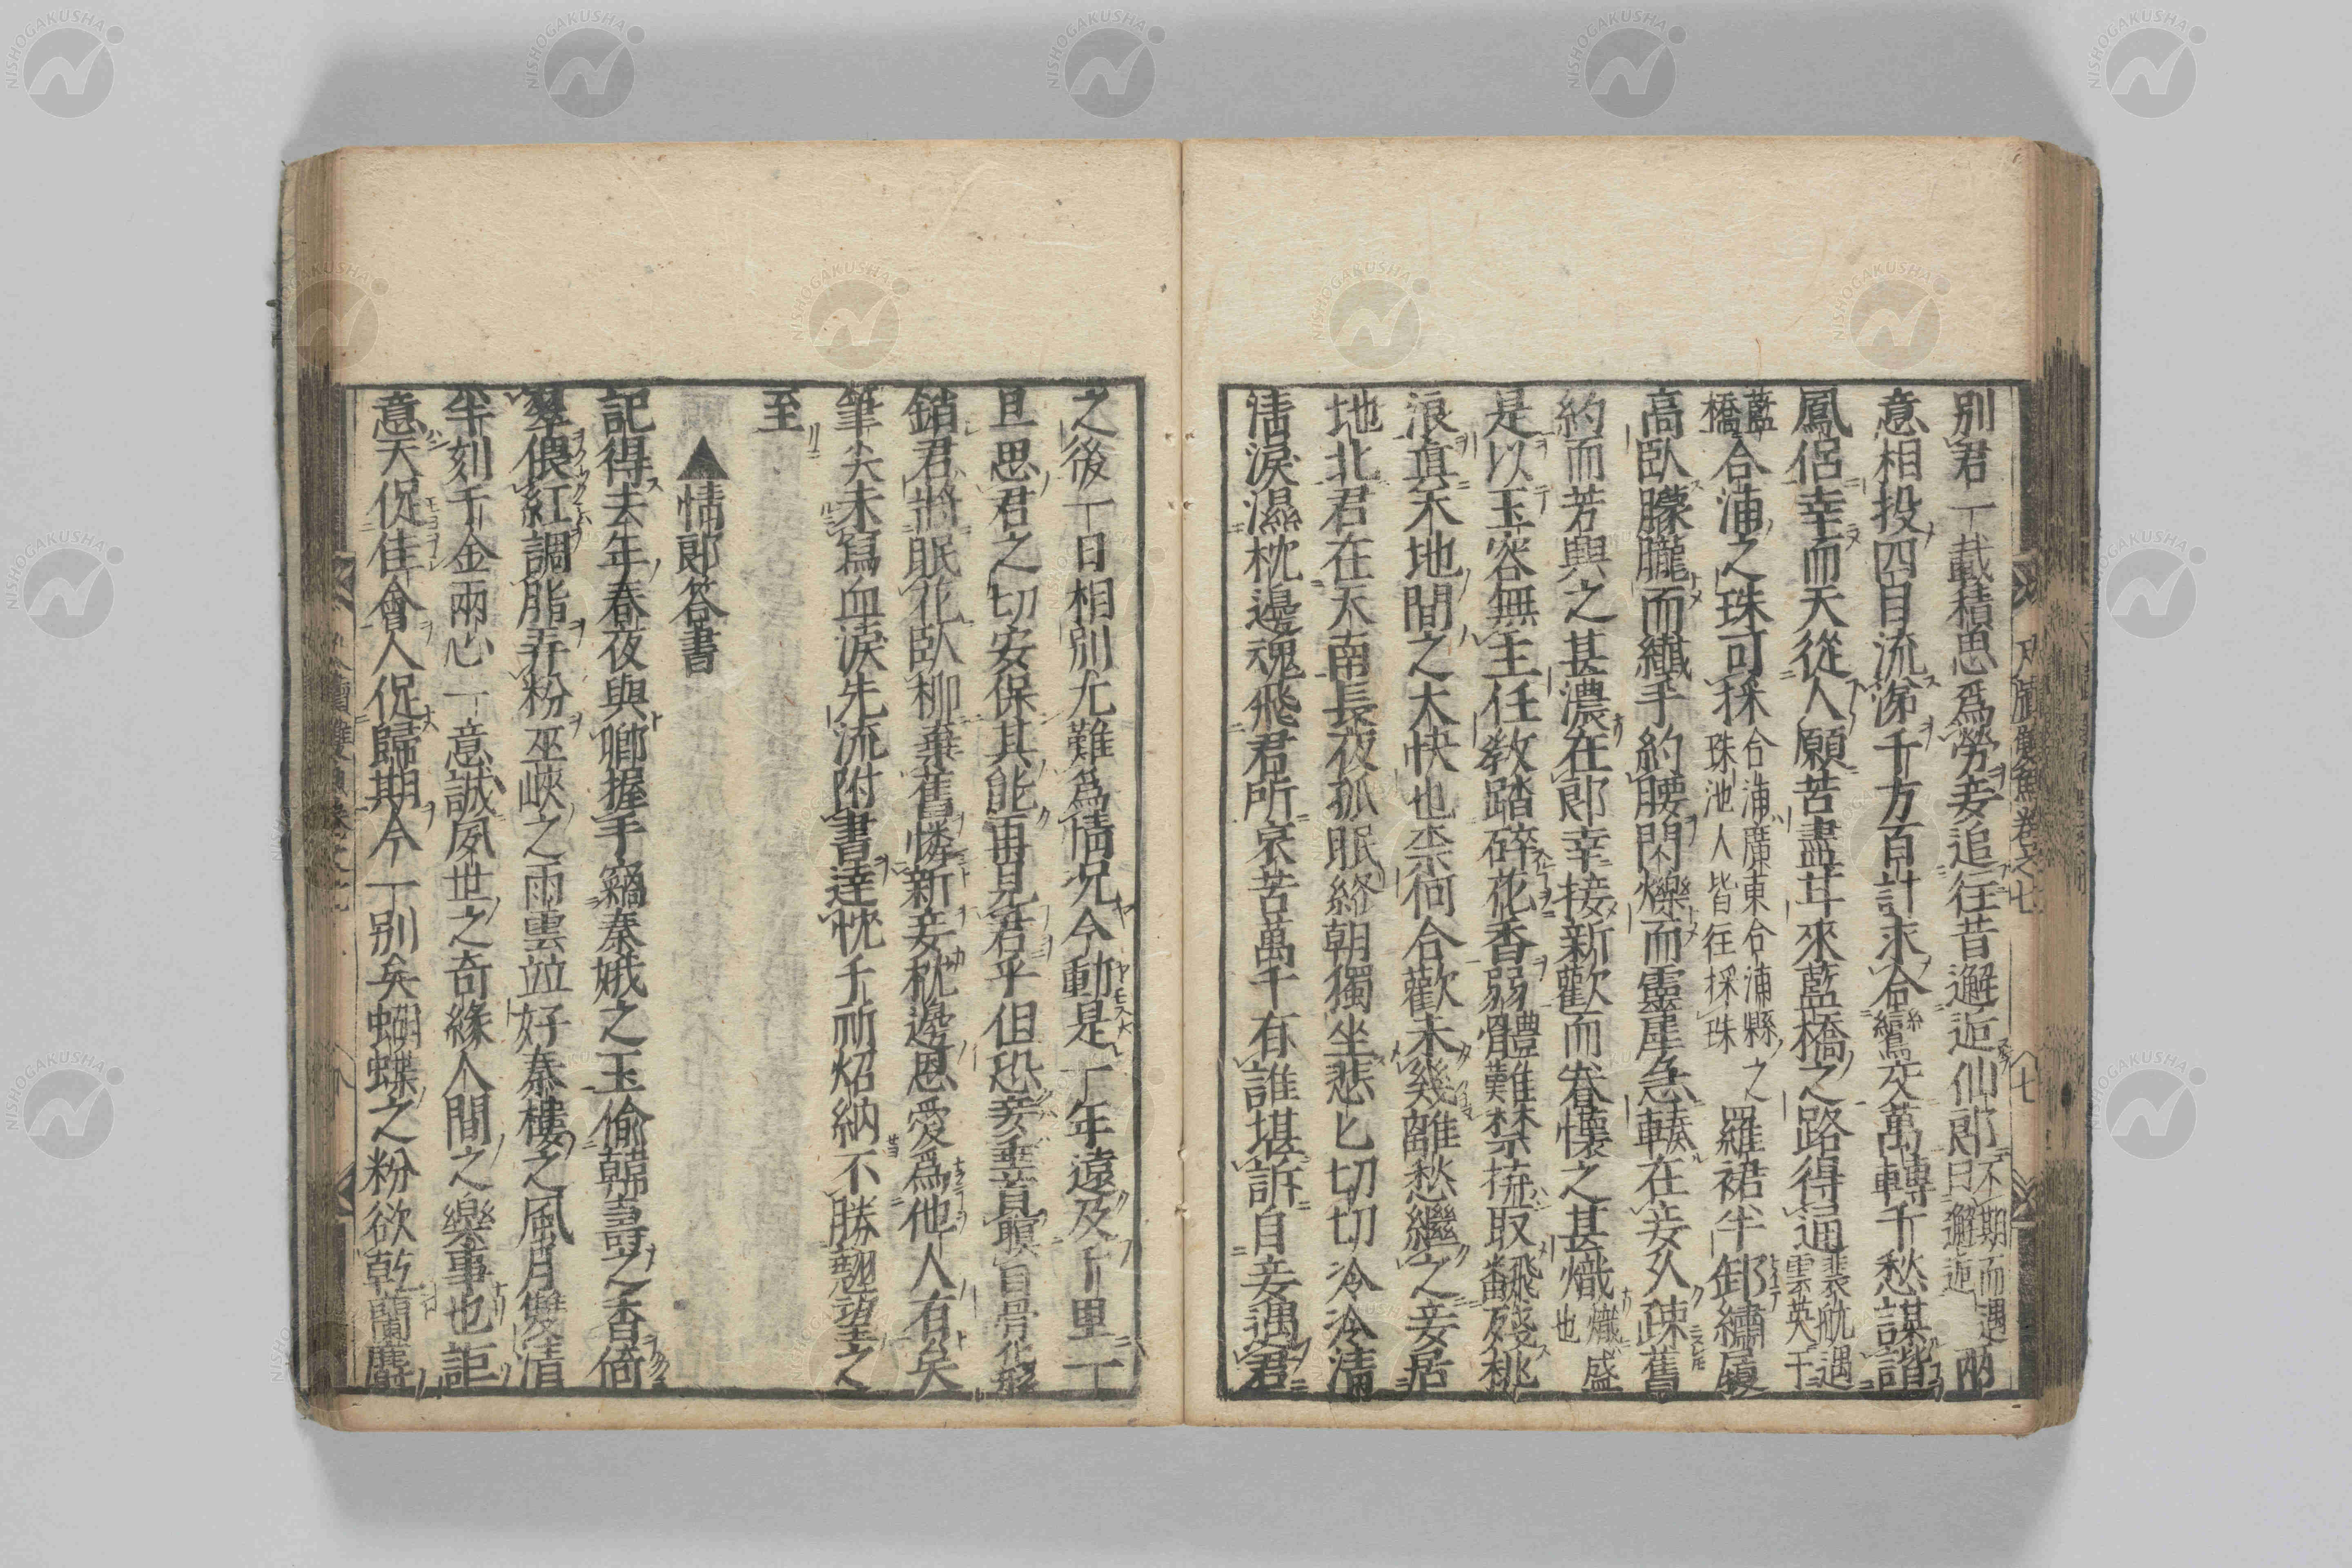 別君一載積思爲勞妾追往昔邂逅仙郎不期而遇曰邂逅兩
意相投四目流涕千方百計求合鸞交萬轉千愁謀諧
鳳侶幸而天從人願苦盡甘來藍橋之路得通裴航遇雲英于
藍橋合浦之珠可採合浦廣東合浦縣之珠池人皆往採珠羅裙半卸繡履
高臥朦朧而纖手約腰閃爍而靈犀急輳在妾久疎舊
約而芳興之甚濃在郎幸接新歡而眷懷之甚熾熾盛也
是以玉容無主任教踏碎花香弱體難禁㨓取飜殘桃
浪真天地間之大快也柰何合歡未幾離愁繼之妾居
地北君在天南長夜孤眠終朝獨坐悲匕切切冷冷清
清淚濕枕邊魂飛君所哀苦萬千有誰堪訴自妾遇君
之後一日相別尤難爲情况今動是一年遠及千里一
旦思君之切安保其能再見君乎但恐妾垂首瞑目骨化形
銷君將眠花臥柳棄舊憐新妾枕邊恩愛爲他人有矣
筆尖未寫血淚先流附書達忱千祈炤納不勝翹望之
至
▲情郎答書
記得去年春夜與卿握手竊秦娥之玉偷韓壽之香倚
翠偎紅調脂弄粉巫峽之雨雲並好秦樓之風月雙清
半刻千金兩心一意誠夙世之奇緣人間之樂事也詎
意天促佳會人促歸期今一別矣蝴蝶之粉欲乾蘭麝
卷之七
七